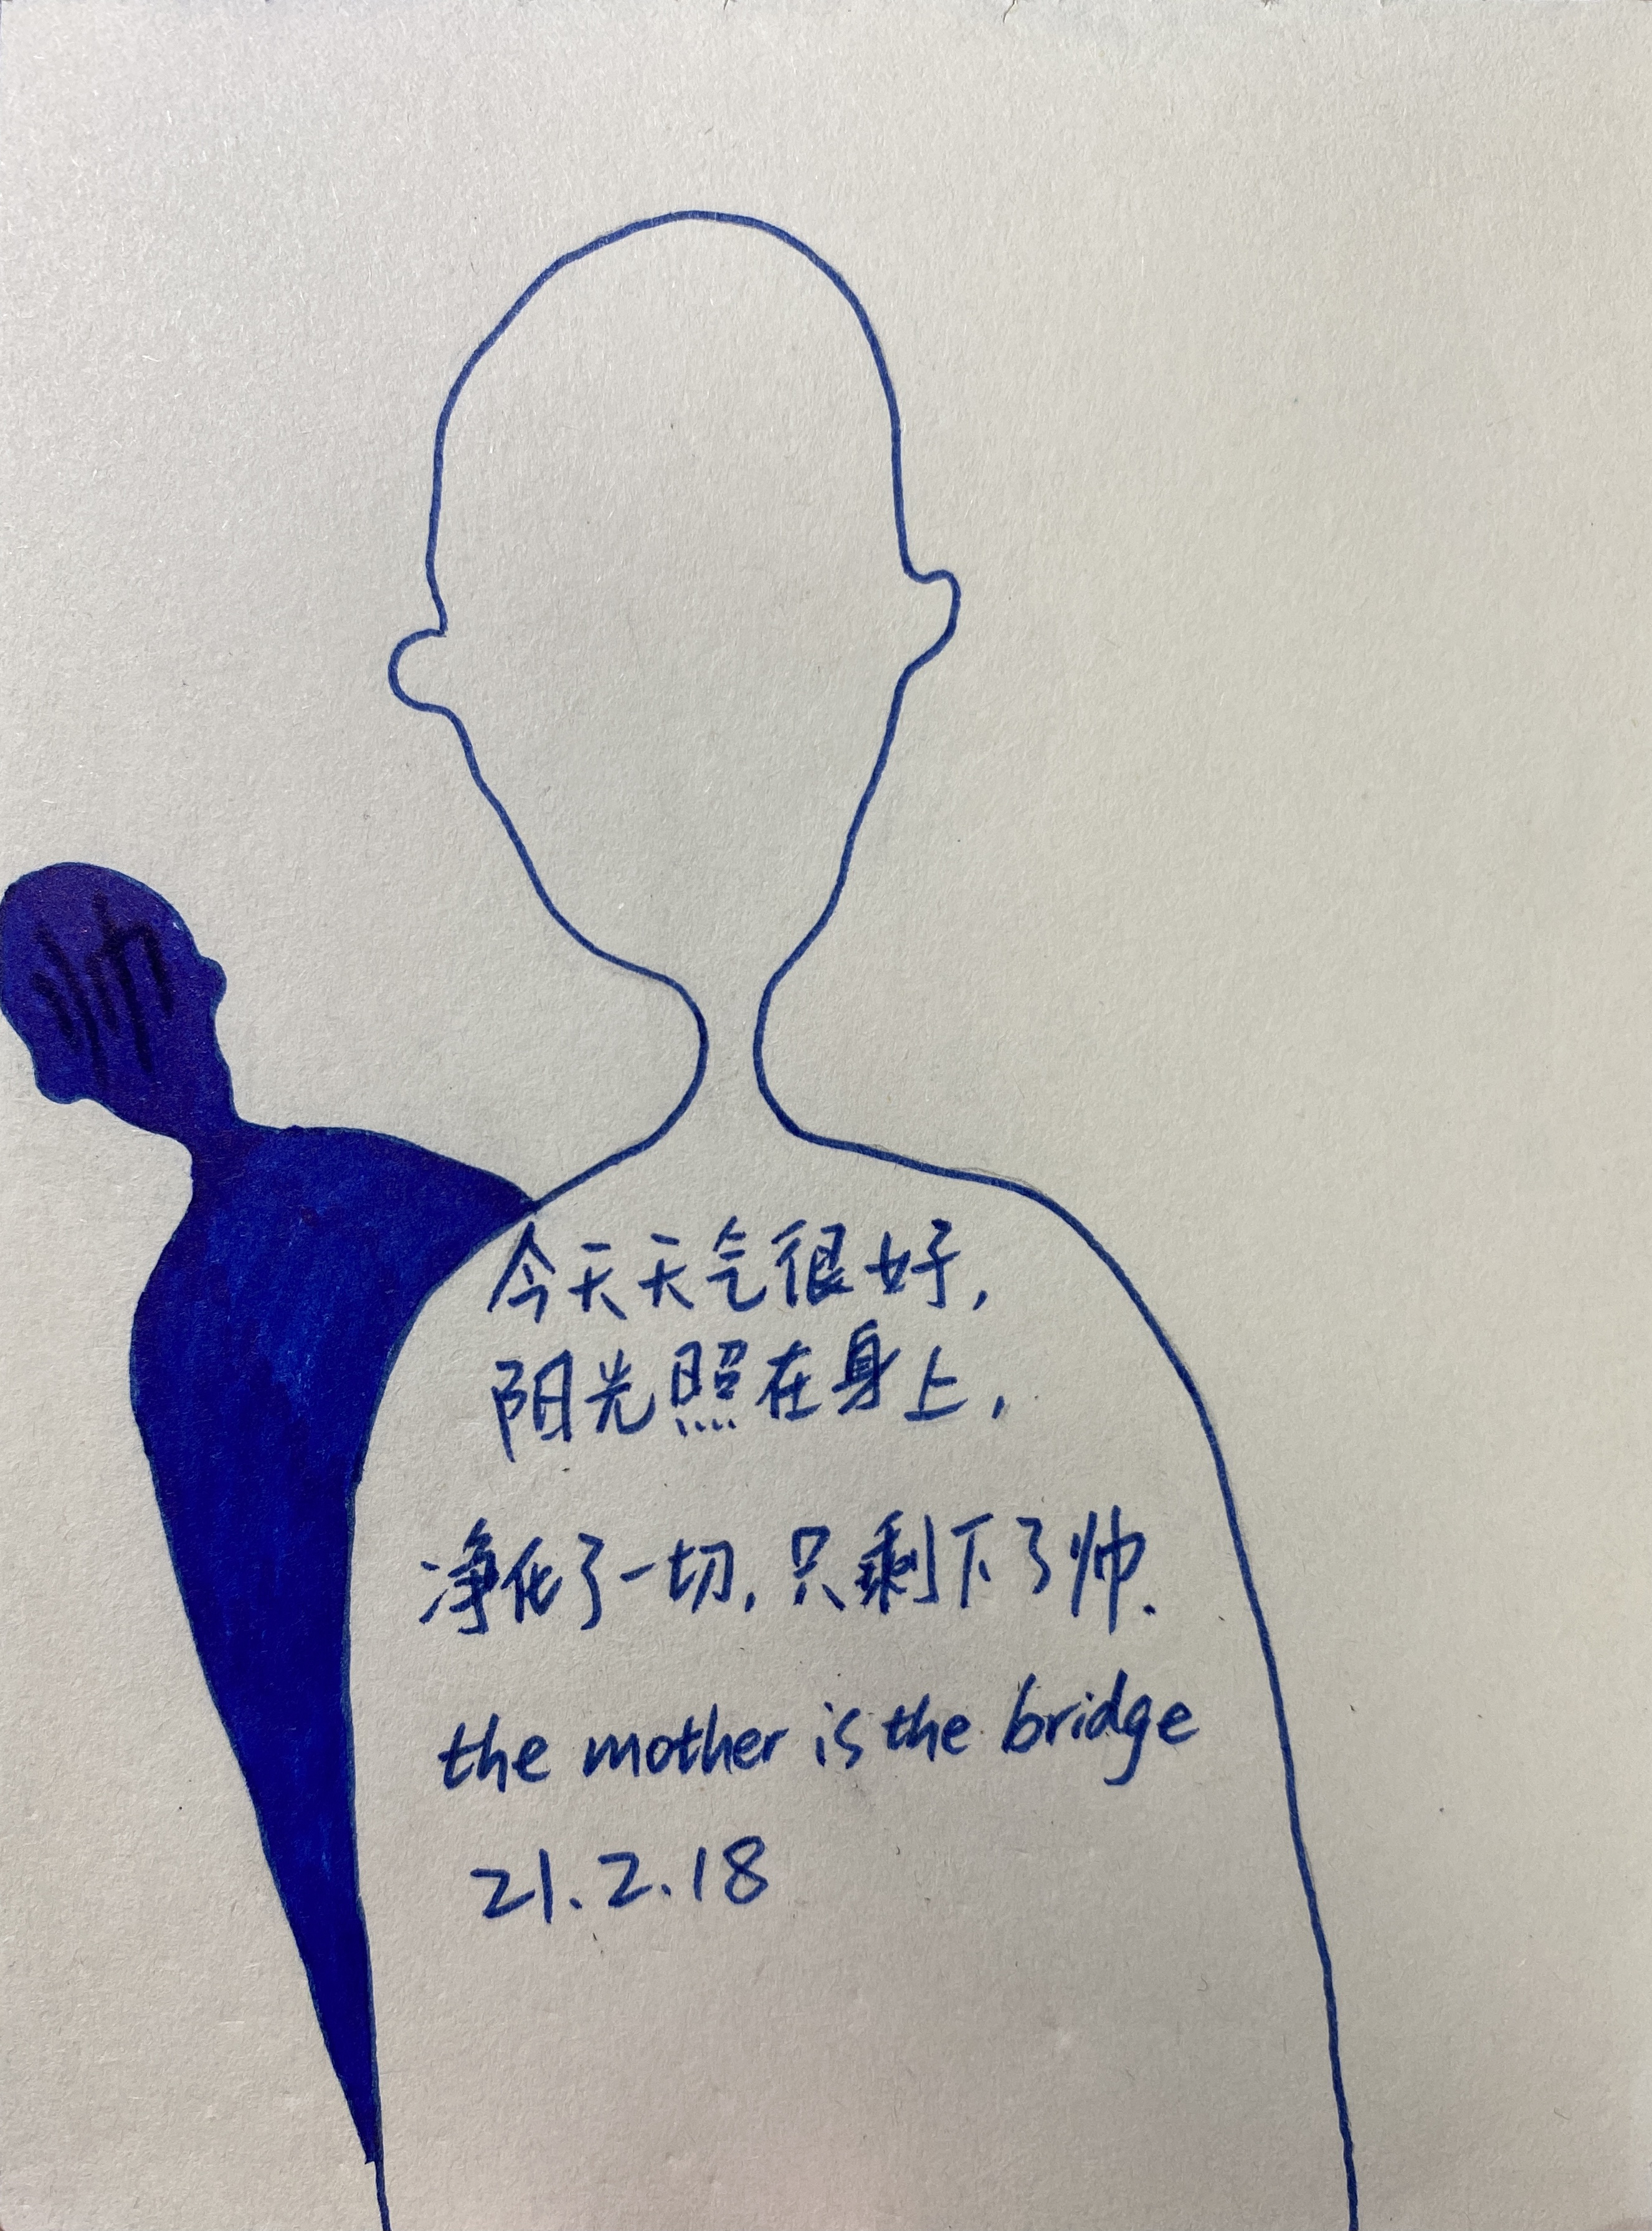 帅
今天天气很好,
阳光照在身上,
净化了一切,只剩下了帅.
the mother is the bridge
21.2.18